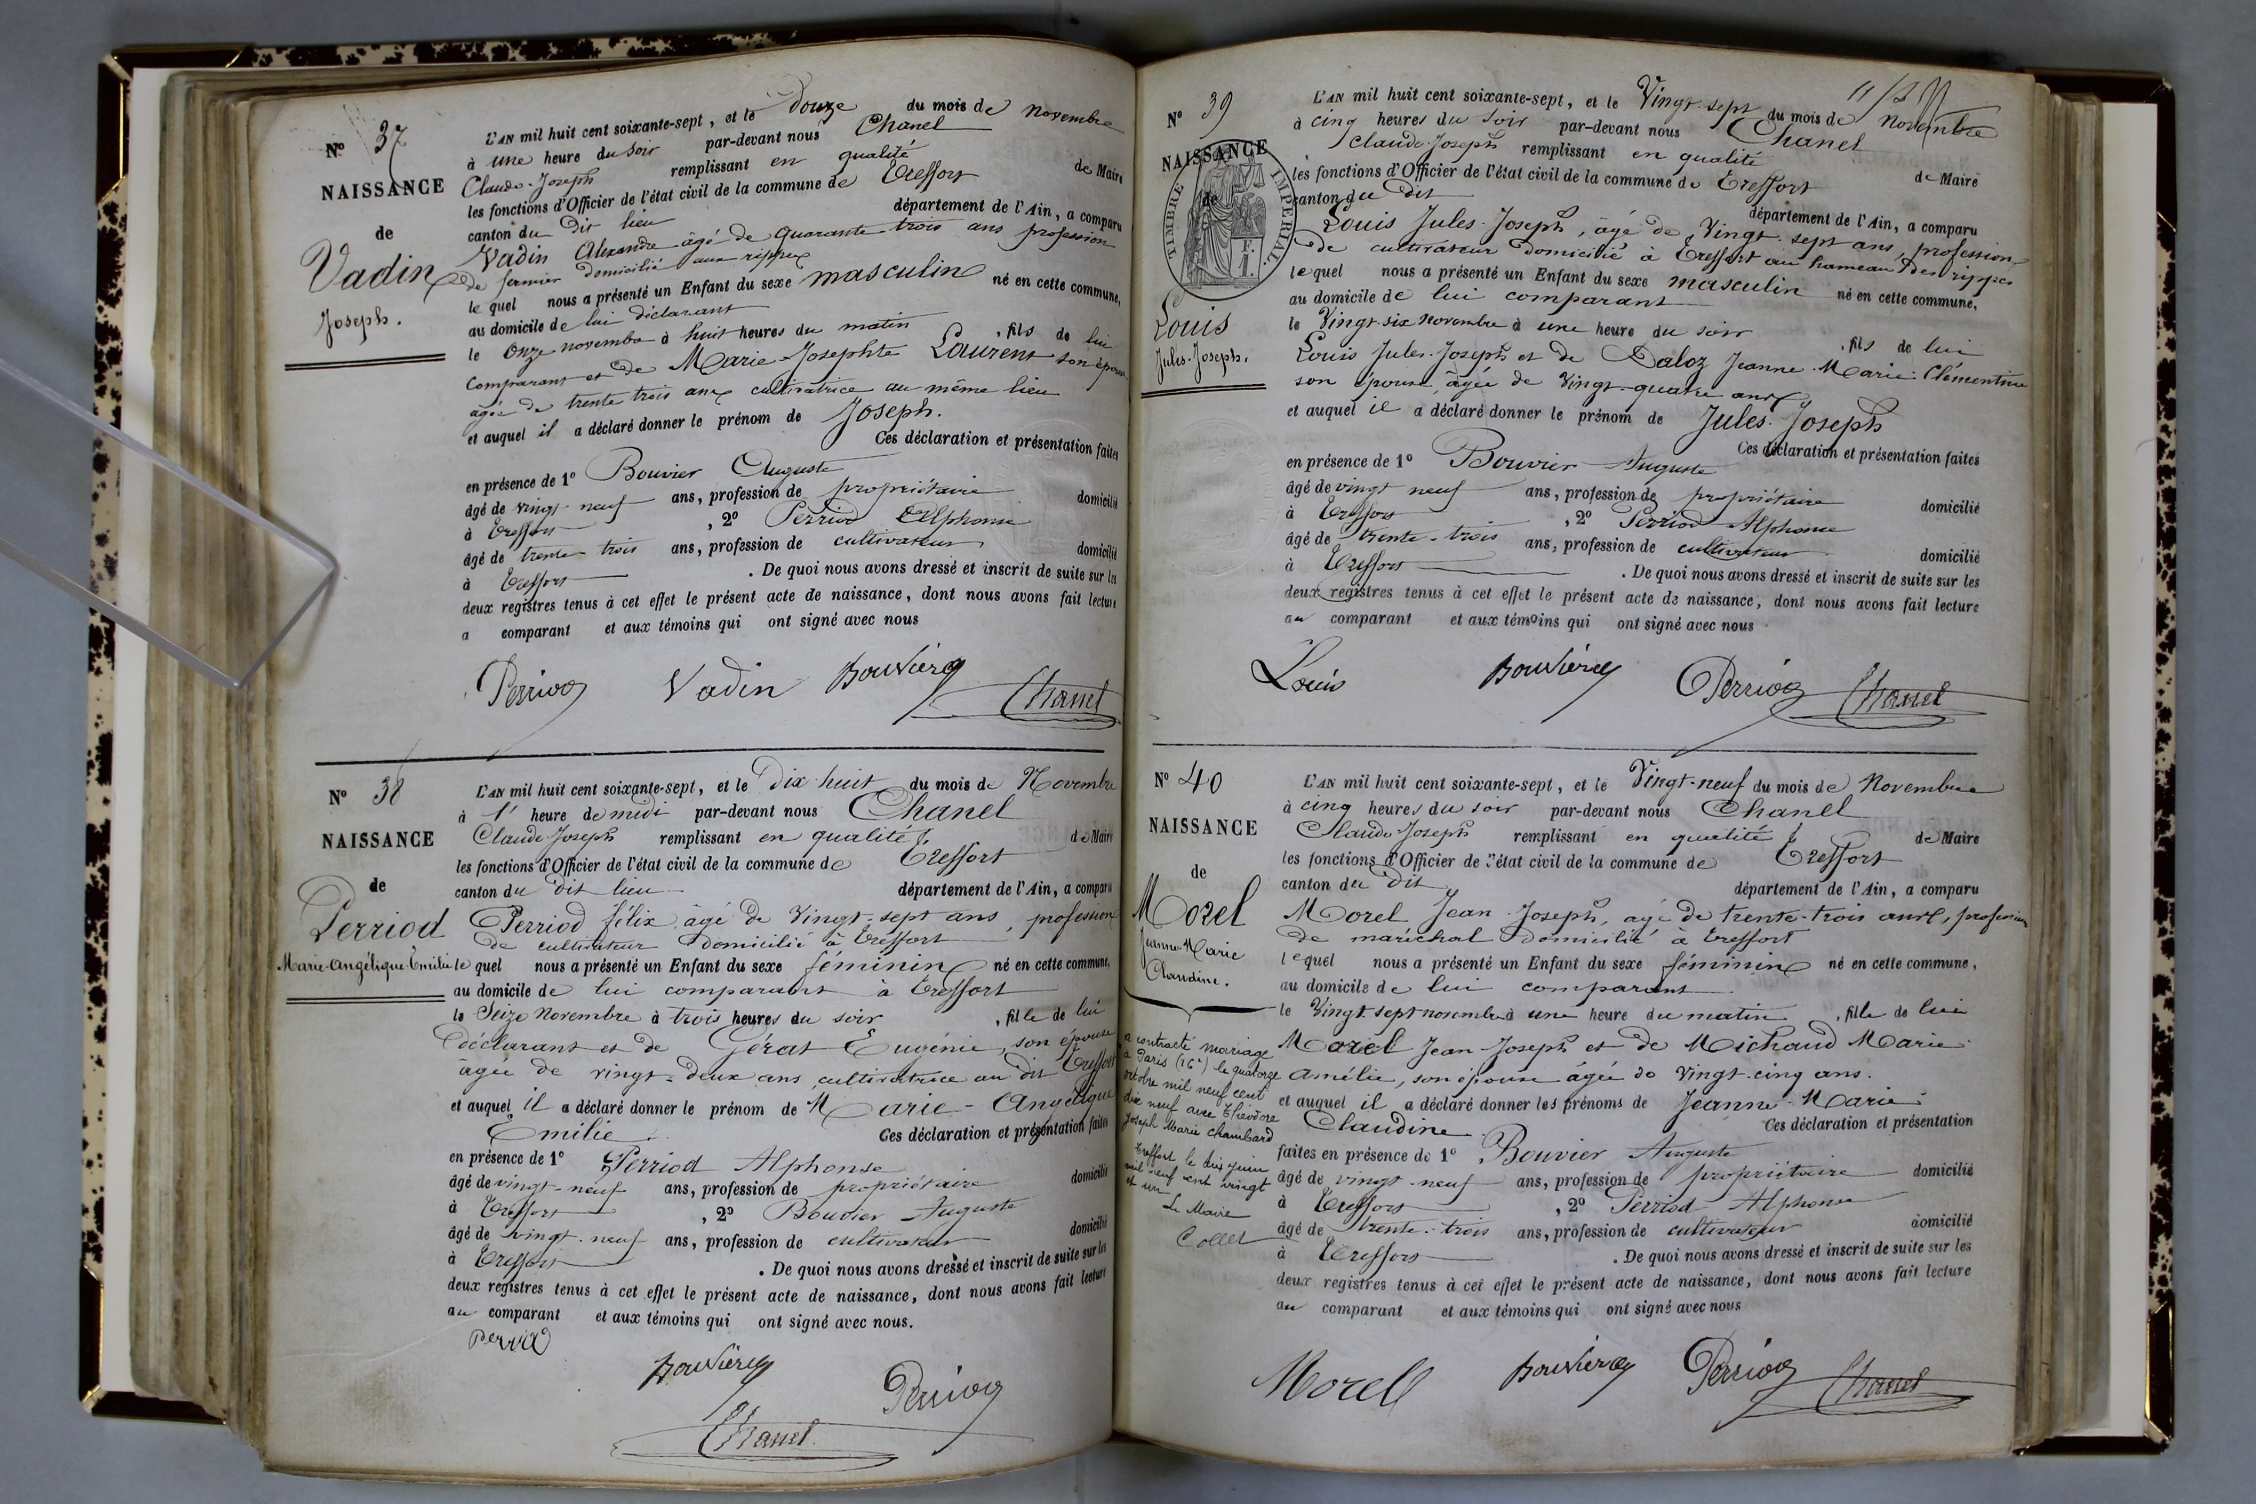 N° 37
NAISSANCE
de
Vadin
Joseph.
L'AN mil huit cent soixante-sept, et le douze du mois de novembre
à une heure du soir par-devant nous Chanel
Claude-Joseph remplissant en qualité de Maire
les fonctions d'Officier de l'état civil de la commune de Treffort
canton du dit lieu département de l'Ain, a comparu
Vadin Alexandre âgé de quarante trois ans profession
de fermier domicilié aux rippes
le quel nous a présenté un Enfant du sexe masculin né en cette commune,
au domicile de lui déclarant
le onze novembre à huit heures du matin, fils de lui
comparant et de Marie Josephte Laurent son épouse
âgée de trente trois ans cultivatrice au même lieu
et auquel il a déclaré donner le prénom de Joseph.
Ces déclaration et présentation faites
en présence de 1° Bouvier Auguste
âgé de vingt-neuf ans, profession de propriétaire domicilié
à Treffort, 2° Perriod Alphonse
âgé de trente-trois ans, profession de cultivateur domicilié
à Treffort. De quoi nous avons dressé et inscrit de suite sur les
deux registres tenus à cet effet le présent acte de naissance, dont nous avons fait lecture
a comparant et aux témoins qui ont signé avec nous
Perriod Vadin Bouvier Chanel
N° 38
NAISSANCE
de
Perriod
Marie-Angélique-Emilie
L'AN mil huit cent soixante-sept, et le Dix huit du mois de Novembre
à 1' heure de midi par-devant nous Chanel
Claude-Joseph remplissant en qualité de Maire
les fonctions d'Officier de l'état civil de la commune de Treffort
canton du dit lieu département de l'Ain, a comparu
Perriod félix âgé de vingt-sept ans, profession
de cultivateur domicilié à Treffort
le quel nous a présenté un Enfant du sexe féminin né en cette commune,
au domicile de lui comparant à Treffort
le Seize Novembre à trois heures du soir, fille de lui
déclarant et de Gérat Eugénie, son épouse
âgée de vingt-deux ans, cultivatrice au dit Treffort
et auquel il a déclaré donner le prénom de Marie-Angélique
Emilie Ces déclaration et présentation faites
en présence de 1° Perriod Alphonse
âgé de vingt-neuf ans, profession de propriétaire domicilié
à Treffort, 2° Bouvier Auguste
âgé de vingt-neuf ans, profession de cultivateur domicilié
à Treffort. De quoi nous avons dressé et inscrit de suite sur les
deux registres tenus à cet effet le présent acte de naissance, dont nous avons fait lecture
au comparant et aux témoins qui ont signé avec nous.
Perriod
Bouvier Perriod
Chanel
N° 39
NAISSANCE
de
TIMBRE IMPERIAL
Louis
Jules-Joseph.
L'AN mil huit cent soixante-sept, et le Vingt-sept du mois de Novembre
à cinq heures du soir par-devant nous Chanel
Claude-Joseph remplissant en qualité de Maire
les fonctions d'Officier de l'état civil de la commune de Treffort
canton du dit département de l'Ain, a comparu
Louis Jules-Joseph, âgé de Vingt-sept ans, profession
de cultivateur domicilié à Treffort au hameau des rippes
le quel nous a présenté un Enfant du sexe masculin né en cette commune,
au domicile de lui comparant
le Vingt-six novembre à une heure du soir, fils de lui
Louis Jules-Joseph et de Daloz Jeanne-Marie-Clémentine
son épouse âgée de Vingt-quatre ans
et auquel il a déclaré donner le prénom de Jules-Joseph
Ces déclaration et présentation faites
en présence de 1° Bouvier Auguste
âgé de vingt neuf ans, profession de propriétaire domicilié
à Treffort, 2° Perriod Alphonse
âgé de trente-trois ans, profession de cultivateur domicilié
à Treffort. De quoi nous avons dressé et inscrit de suite sur les
deux registres tenus à cet effet le présent acte de naissance, dont nous avons fait lecture
au comparant et aux témoins qui ont signé avec nous
Louis Bouvier Perriod Chanel
N° 40
NAISSANCE
de
Morel
Jeanne-Marie
Claudine.
a contracté mariage
à Paris (16e) le quatorze
octobre mil neuf cent
dix neuf avec Théodore
Joseph Marie Chambard
Treffort le dix juin
mil neuf cent vingt
et un
Le Maire
Collet
L'AN mil huit cent soixante-sept, et le Vingt-neuf du mois de Novembre
à cinq heures du soir par-devant nous Chanel
Claude-Joseph remplissant en qualité de Maire
les fonctions d'Officier de l'état civil de la commune de Treffort
canton du dit département de l'Ain, a comparu
Morel Jean-Joseph, âgé de trente-trois ans, profession
de maréchal domicilié à Treffort
lequel nous a présenté un Enfant du sexe féminin né en cette commune,
au domicile de lui comparant
le Vingt sept novembre à une heure du matin, fille de lui
Morel Jean-Joseph et de Michaud Marie-
Amélie, son épouse âgée de vingt-cinq ans.
et auquel il a déclaré donner les prénoms de Jeanne-Marie-
Claudine Ces déclaration et présentation
faites en présence de 1° Bouvier Auguste
âgé de vingt-neuf ans, profession de propriétaire domicilié
à Treffort, 2° Perriod Alphonse
âgé de trente-trois ans, profession de cultivateur domicilié
à Treffort. De quoi nous avons dressé et inscrit de suite sur les
deux registres tenus à cet effet le présent acte de naissance, dont nous avons fait lecture
au comparant et aux témoins qui ont signé avec nous
Morel Bouvier Perriod Chanel